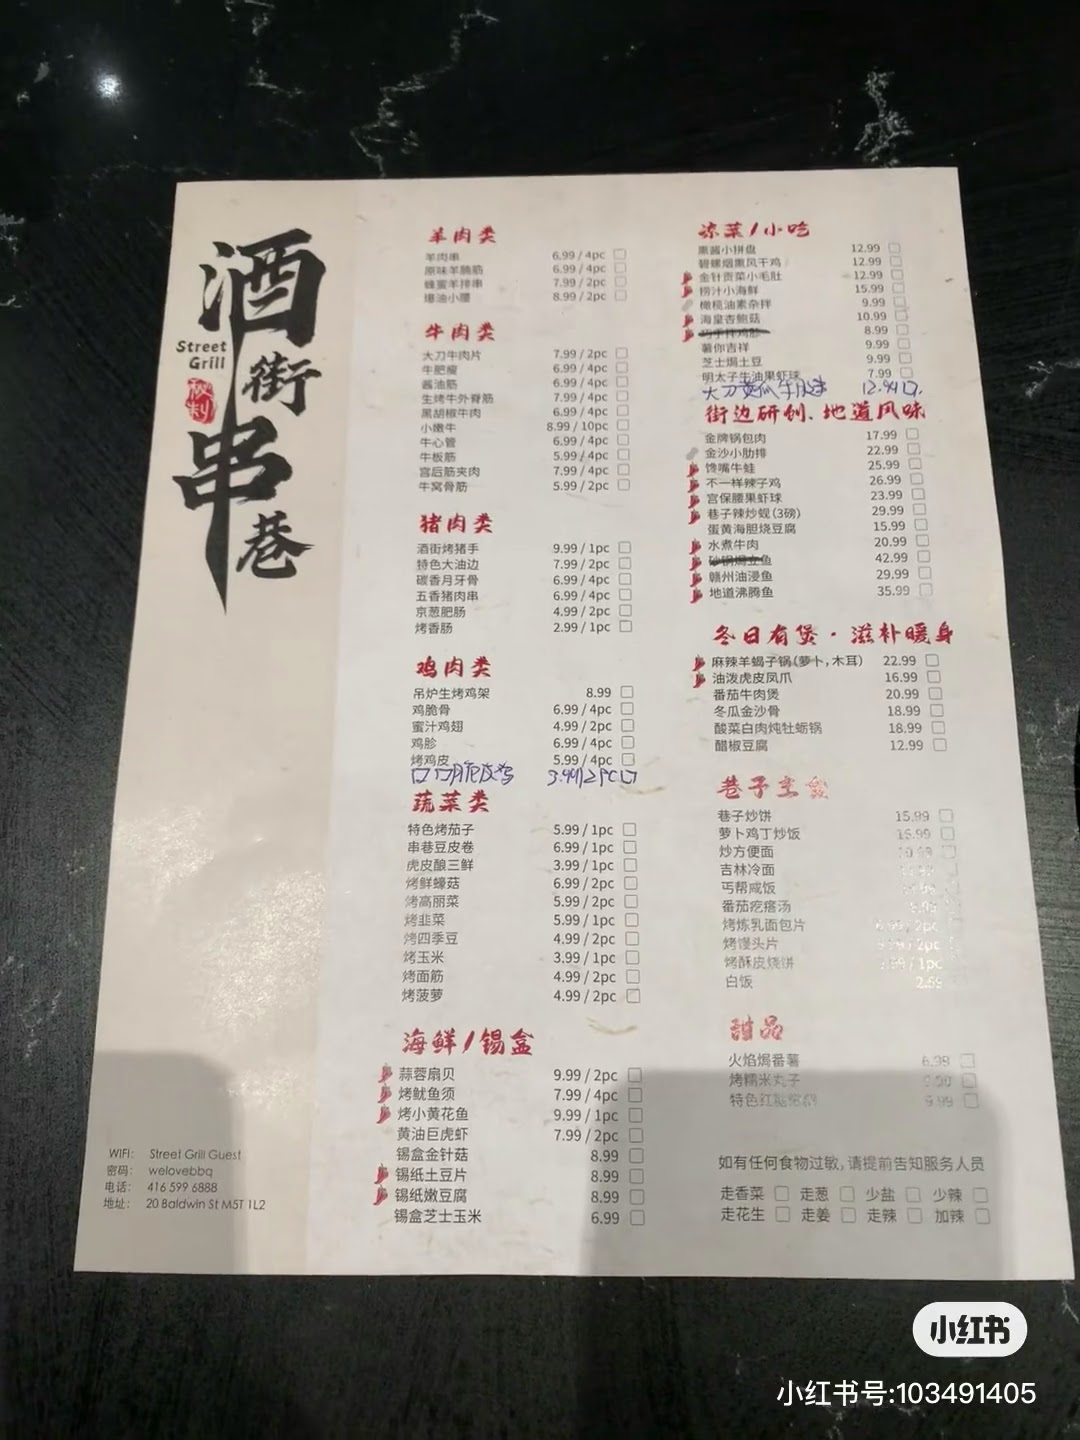 酒街串巷
Street
Grill
秘制
WIFI: Street Grill Guest
密码: welovebbq
电话: 416 599 6888
地址: 20 Baldwin St M5T 1L2
羊肉类
羊肉串 6.99 / 4pc
原味羊腩筋 6.99 / 4pc
蜂蜜羊排串 7.99 / 2pc
爆油小腰 8.99 / 2pc
牛肉类
大刀牛肉片 7.99 / 2pc
牛肥瘦 6.99 / 4pc
酱油筋 6.99 / 4pc
生烤牛外脊筋 7.99 / 4pc
黑胡椒牛肉 6.99 / 4pc
小嫩牛 8.99 / 10pc
牛心管 6.99 / 4pc
牛板筋 5.99 / 4pc
宫后筋夹肉 7.99 / 4pc
牛窝骨筋 5.99 / 2pc
猪肉类
酒街烤猪手 9.99 / 1pc
特色大油边 7.99 / 2pc
碳香月牙骨 6.99 / 4pc
五香猪肉串 6.99 / 4pc
京葱肥肠 4.99 / 2pc
烤香肠 2.99 / 1pc
鸡肉类
吊炉生烤鸡架 8.99
鸡脆骨 6.99 / 4pc
蜜汁鸡翅 4.99 / 2pc
鸡胗 6.99 / 4pc
烤鸡皮 5.99 / 4pc
口口脆皮鸡 3.99/2PC
蔬菜类
特色烤茄子 5.99 / 1pc
串巷豆皮卷 6.99 / 1pc
虎皮酿三鲜 3.99 / 1pc
烤鲜蠔菇 6.99 / 2pc
烤高丽菜 5.99 / 2pc
烤韭菜 5.99 / 1pc
烤四季豆 4.99 / 2pc
烤玉米 3.99 / 1pc
烤面筋 4.99 / 2pc
烤菠萝 4.99 / 2pc
海鲜/锡盒
蒜蓉扇贝 9.99 / 2pc
烤鱿鱼须 7.99 / 4pc
烤小黄花鱼 9.99 / 1pc
黄油巨虎虾 7.99 / 2pc
锡盒金针菇 8.99
锡纸土豆片 8.99
锡纸嫩豆腐 8.99
锡盒芝士玉米 6.99
凉菜/小吃
熏酱小拼盘 12.99
碧螺烟熏风干鸡 12.99
金针贡菜小毛肚 12.99
捞汁小海鲜 15.99
橄榄油素杂拌 9.99
海皇杏鲍菇 10.99
巧手拌鸡胗 8.99
薯你吉祥 9.99
芝士焗土豆 9.99
明太子牛油果虾球 7.99
大刀黄瓜牛 12.99
街边研创、地道风味
金牌锅包肉 17.99
金沙小肋排 22.99
馋嘴牛蛙 25.99
不一样辣子鸡 26.99
宫保腰果虾球 23.99
巷子辣炒蚬(3磅) 29.99
蛋黄海胆烧豆腐 15.99
水煮牛肉 20.99
砂锅焗立鱼 42.99
赣州油浸鱼 29.99
地道沸腾鱼 35.99
冬日有煲·滋补暖身
麻辣羊蝎子锅(萝卜,木耳) 22.99
油泼虎皮凤爪 16.99
番茄牛肉煲 20.99
冬瓜金沙骨 18.99
酸菜白肉炖牡蛎锅 18.99
醋椒豆腐 12.99
巷子主食
巷子炒饼 15.99
萝卜鸡丁炒饭 15.99
炒方便面
吉林冷面
丐帮咸饭
番茄疙瘩汤
烤炼乳面包片 / 2pc
烤馒头片 / 2pc
烤酥皮烧饼 / 1pc
白饭 2.59
甜品
火焰焗番薯 6.99
烤糯米丸子
特色红 9.99
如有任何食物过敏,请提前告知服务人员
走香菜 走葱 少盐 少辣
走花生 走姜 走辣 加辣
小红书
小红书号:103491405